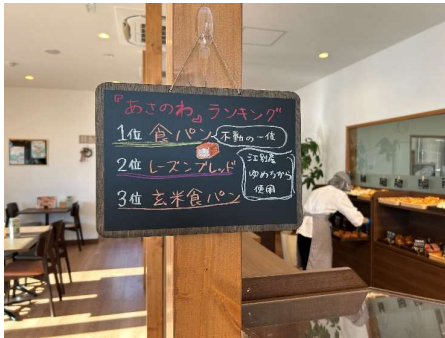 『あさのわ』ランキング
1位 食パン 不動の一位
2位 レーズンブレッド
江別産
ゆめちから
使用
3位 玄米食パン